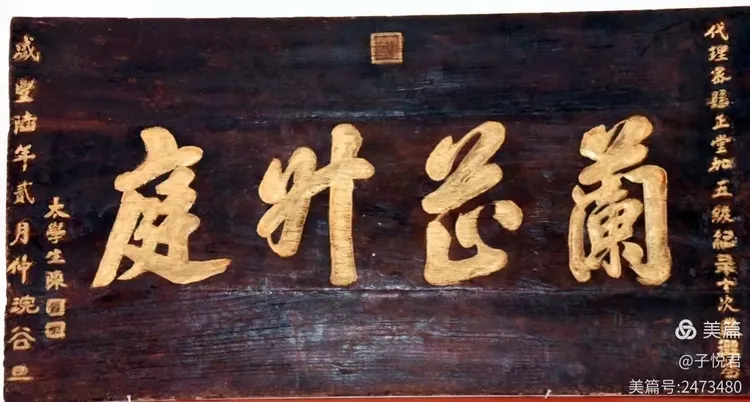 代理縣正堂加五級紀录十次
蘭芷升庭
太學生陳
咸豐陸年貳月仲浣谷旦
美篇
@子悦君
美篇号:2473480